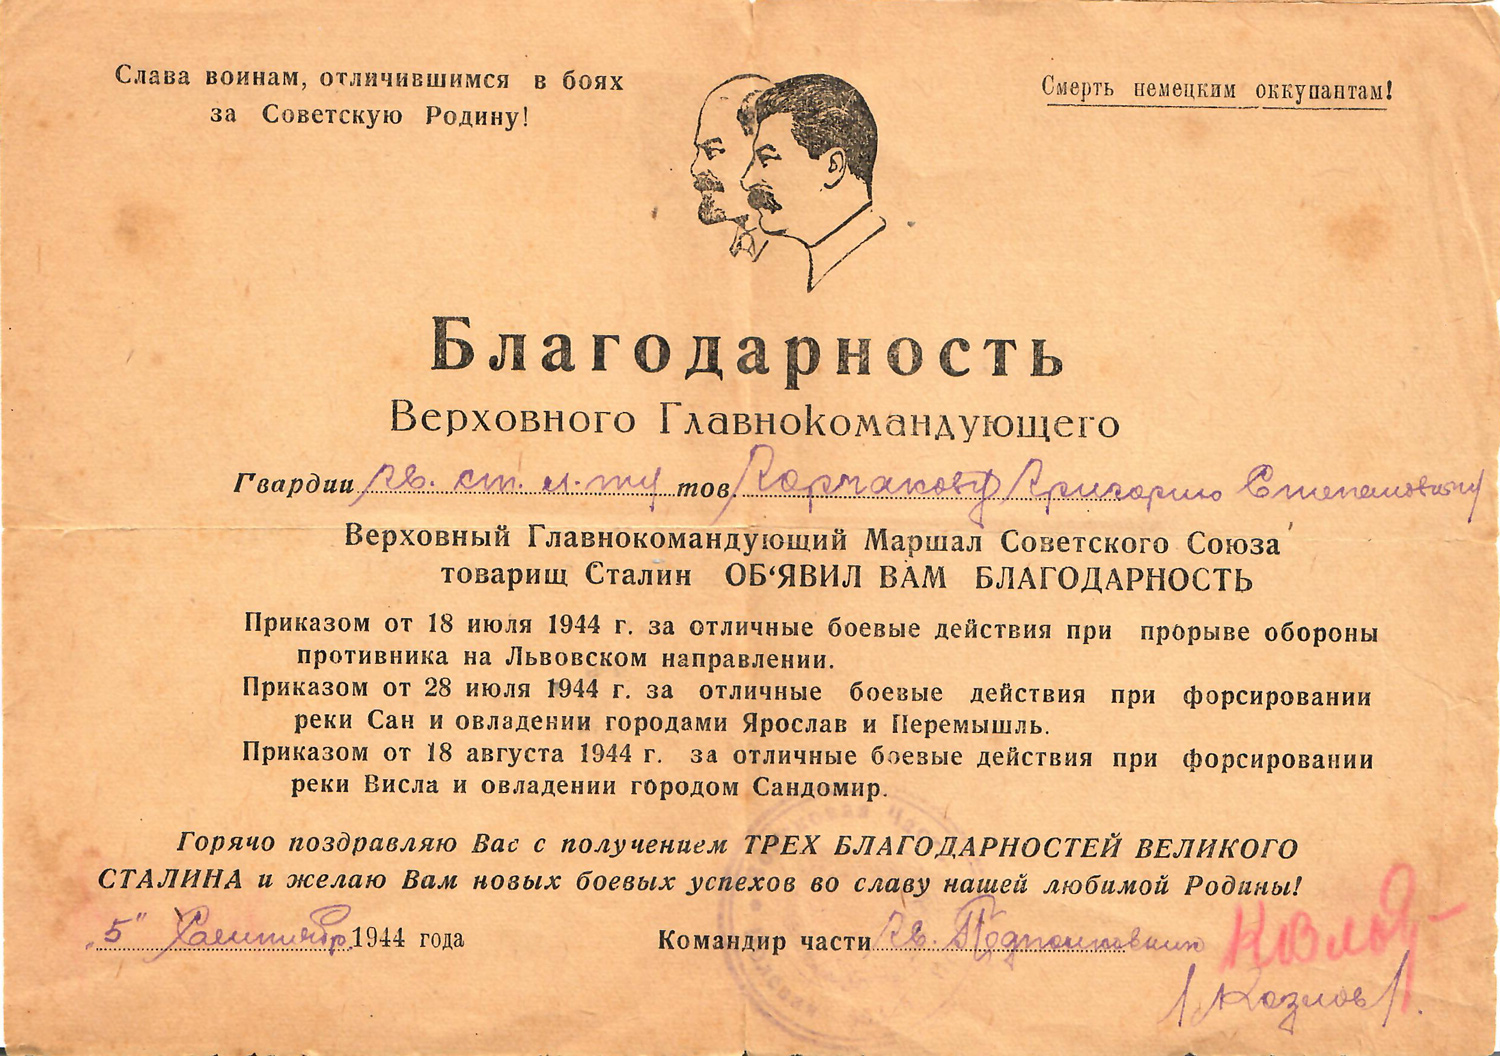 Слава воинам, отличившимся в боях
за Советскую Родину!
Смерть немецким оккупантам!
Благодарность
Верховного Главнокомандующего
Гвардии гв. ст. л-ту тов. Корчакову Григорию Степановичу
Верховный Главнокомандующий Маршал Советского Союза
товарищ Сталин ОБ‘ЯВИЛ ВАМ БЛАГОДАРНОСТЬ
Приказом от 18 июля 1944 г. за отличные боевые действия при прорыве обороны
противника на Львовском направлении.
Приказом от 28 июля 1944 г. за отличные боевые действия при форсировании
реки Сан и овладении городами Ярослав и Перемышль.
Приказом от 18 августа 1944 г. за отличные боевые действия при форсировании
реки Висла и овладении городом Сандомир.
Горячо поздравляю Вас с получением ТРЕХ БЛАГОДАРНОСТЕЙ ВЕЛИКОГО
СТАЛИНА и желаю Вам новых боевых успехов во славу нашей любимой Родины!
„5“ Сентября 1944 года
Командир части гв. Подполковник
/Козлов/.